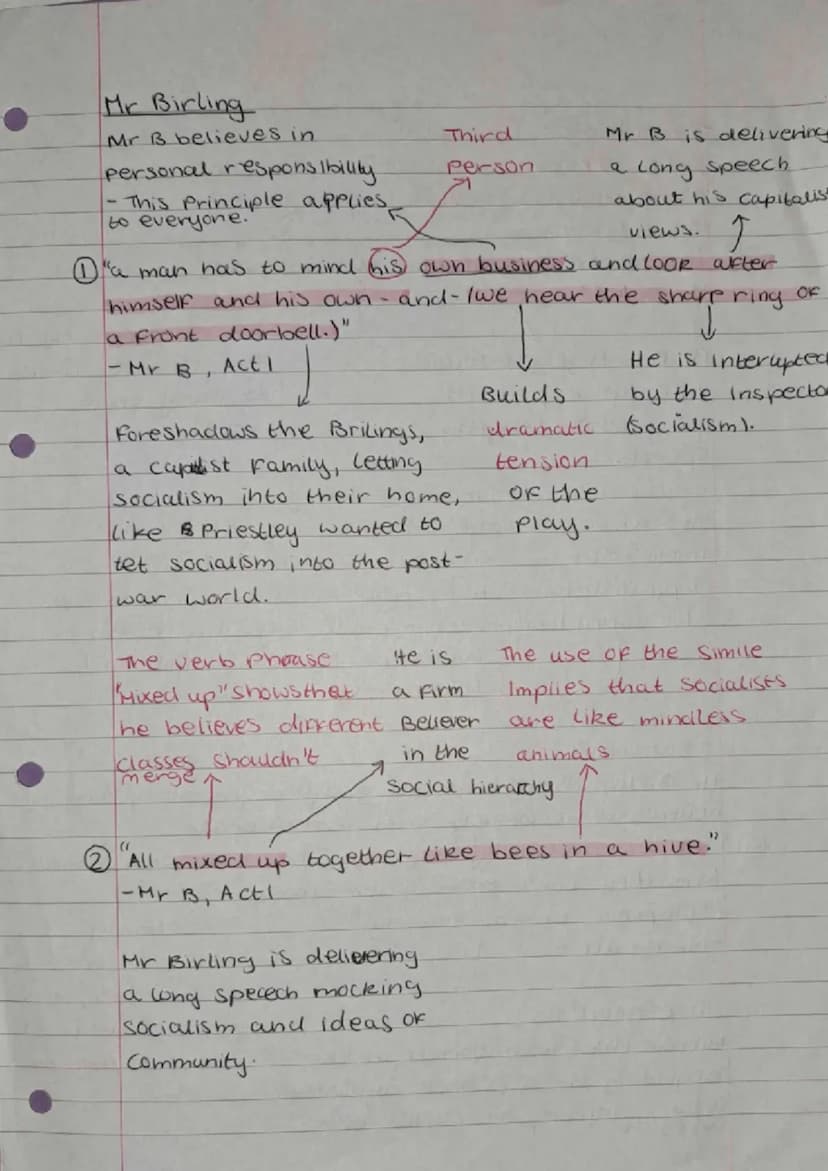 Mr Birling
Mr B believes in
personal responsibility
- This principle applies
to everyone.
Third
person
Mr B is delivering
a long speech
about his capitalis
views.
① "a man has to mind his own business and look after
himself and his own - and - (we hear the sharp ring of
a front doorbell.)"
- Mr B, Act 1
Foreshadows the Brilings,
a capitalist family, letting
socialism into their home,
like Priestley wanted to
let socialism into the post-
war world.
Builds
dramatic
tension
of the
play.
He is interupted
by the Inspecto
(socialism).
The verb phrase
"Mixed up" shows that
he believes different
classes shouldn't
merge
He is
a firm
Believer
in the
social hierarchy
The use of the simile
implies that socialists
are like mindless
animals
② "All mixed up together like bees in a hive."
- Mr B, Act 1
Mr Birling is delivering
a long speech mocking
socialism and ideas of
community.